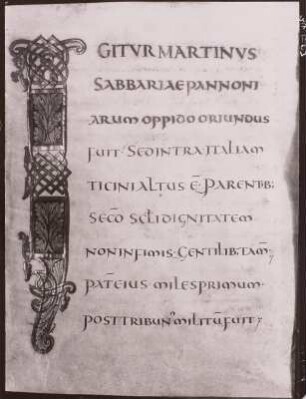 IGITUR MARTINUS
SABBARIAE PANNONI
ARUM OPPIDO ORIUNDUS
FUIT· SED INTRA ITALIAM
TICINI ALTUS Ē· PARENTIB;
SECD̄O SCLI DIGNITATEM
NON INFIMIS· GENTILIB· TAM̄;
PATER EIUS· MILES PRIMUM·
POST TRIBUN' MILITŪ FUIT;